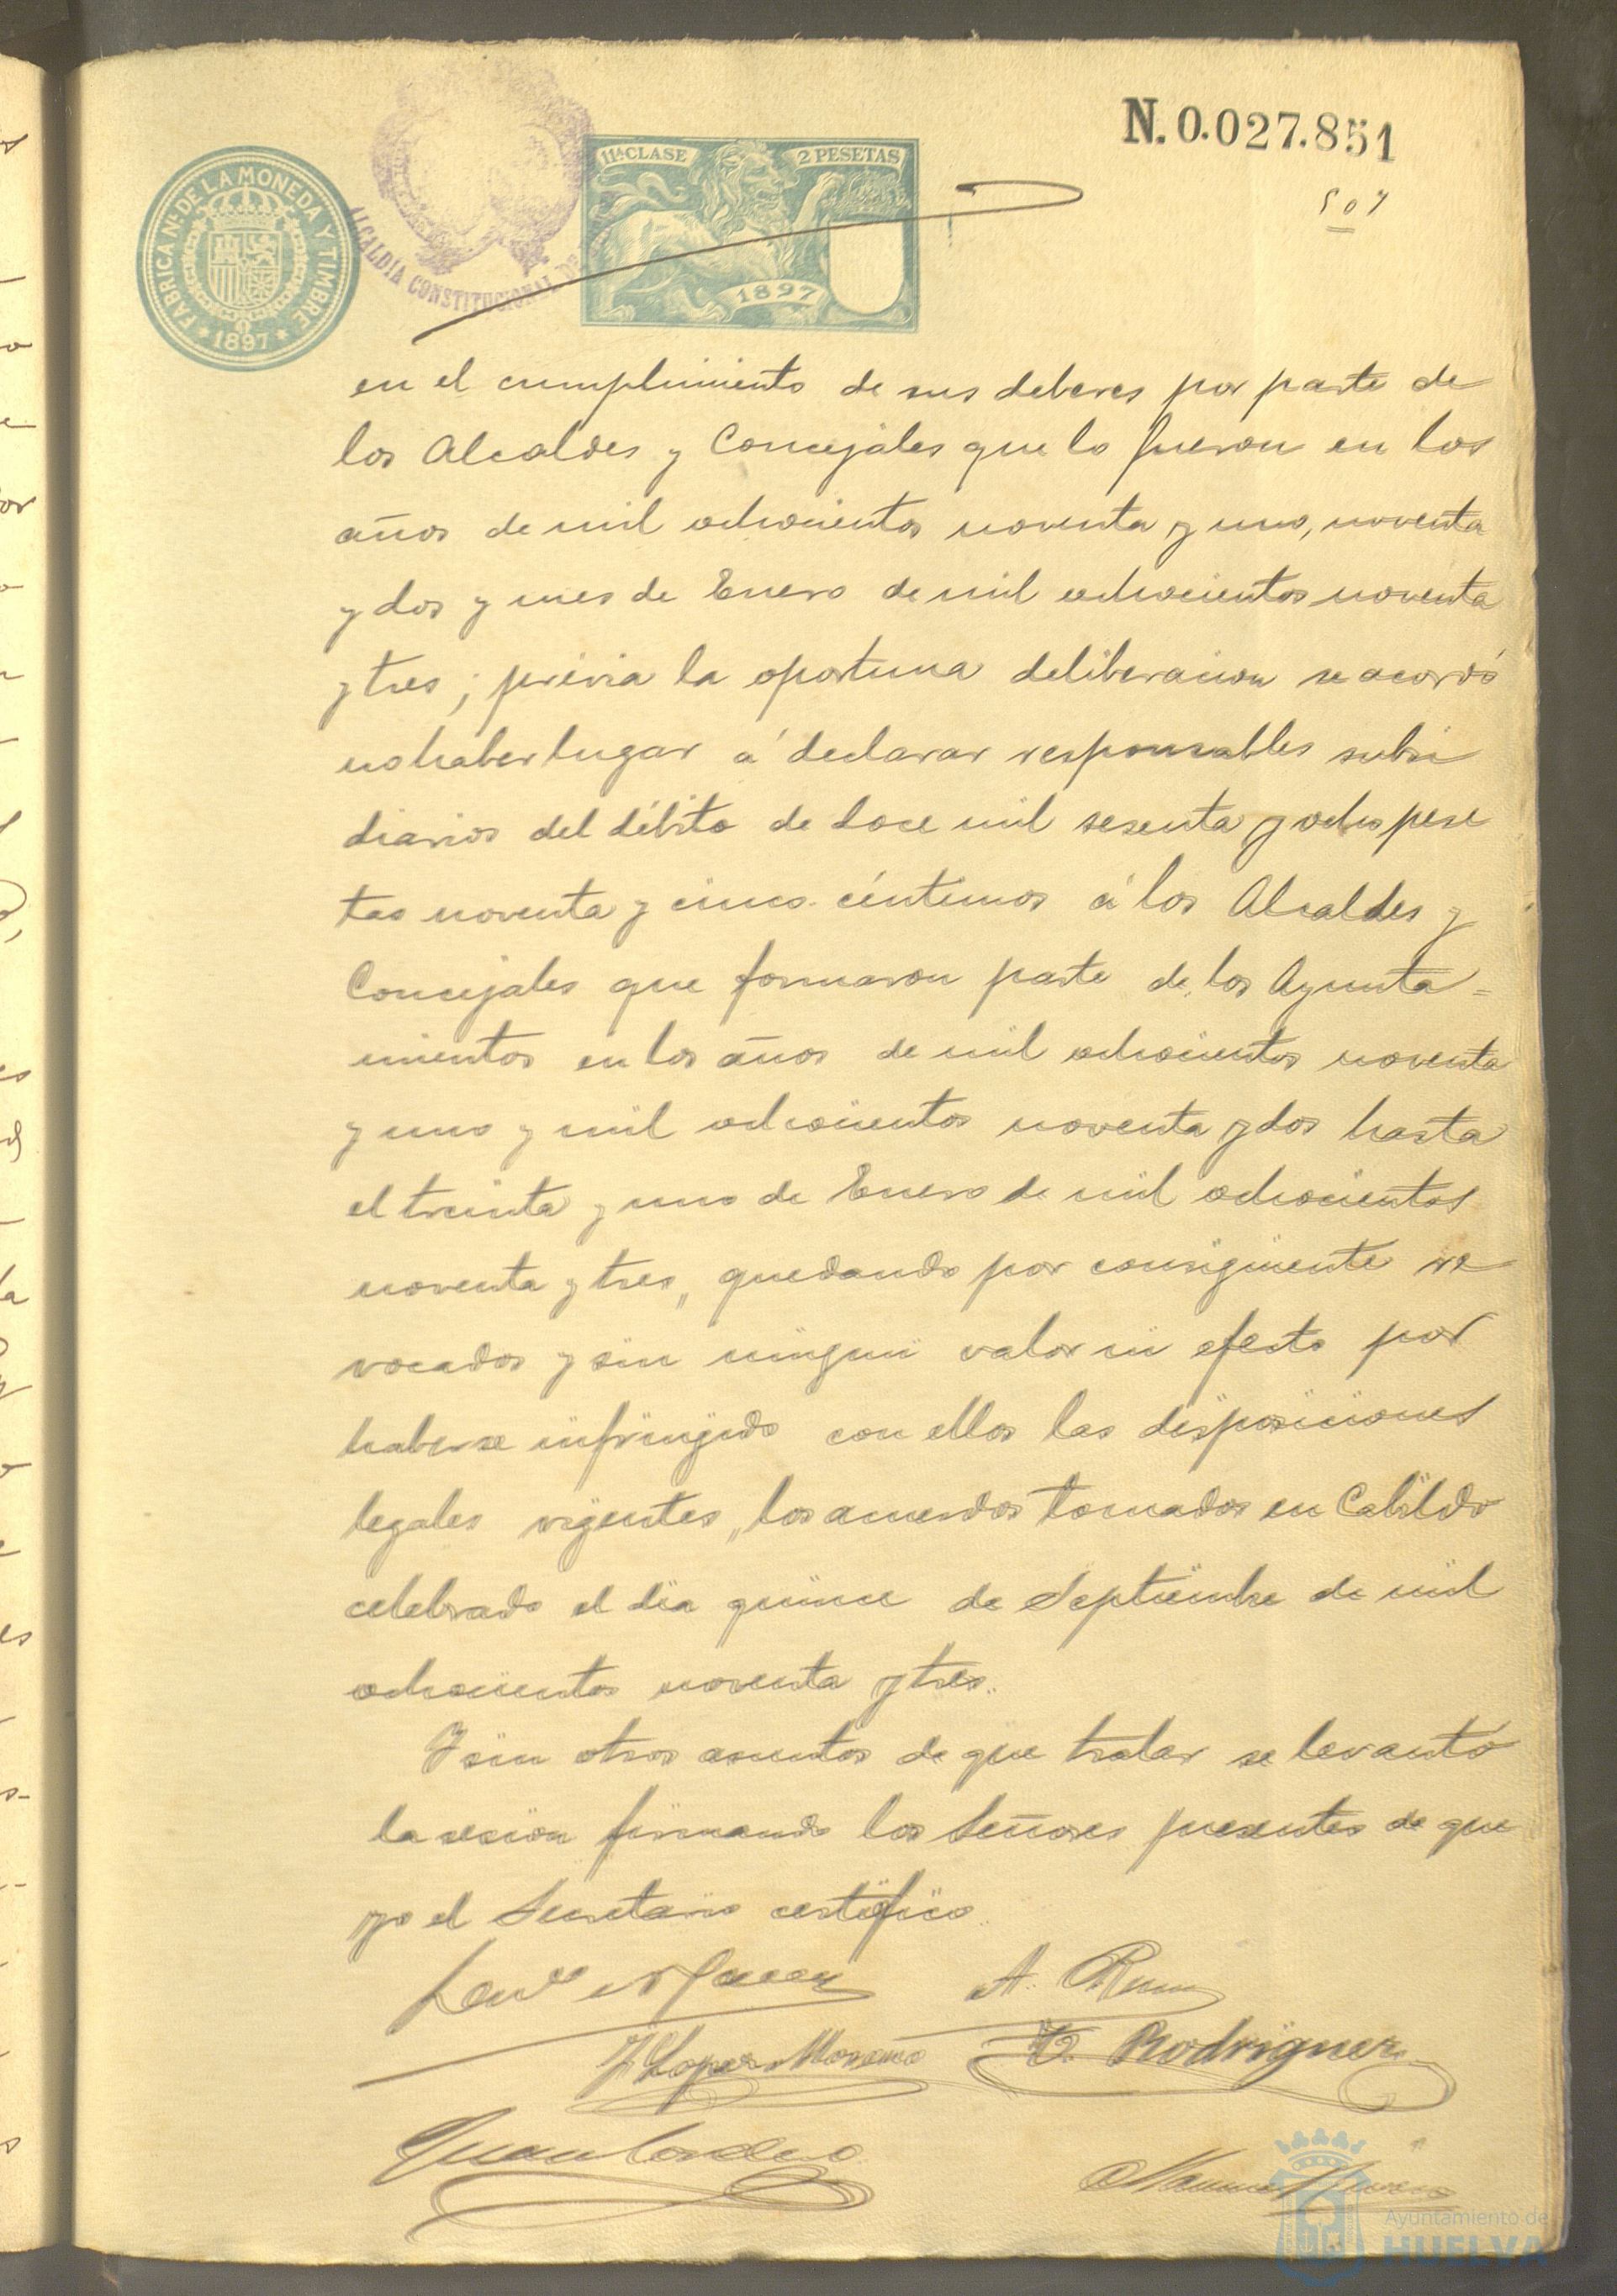 N.0.027.851
507
FÁBRICA NL. DE LA MONEDA Y TIMBRE
* 1897 *
ALCALDIA CONSTITUCIONAL DE
11ª CLASE 2 PESETAS
1897
en el cumplimiento de sus deberes por parte de
los Alcaldes y Concejales que lo fueron en los
años de mil ochocientos noventa y uno, noventa
y dos y mes de Enero de mil ochocientos noventa
y tres; previa la oportuna deliberacion se acordó
no haber lugar á declarar responsables subsi
diarios del débito de doce mil sesenta y ocho pese
tas noventa y cinco céntimos á los Alcaldes y
Concejales que formaron parte de los Ayunta=
mientos en los años de mil ochocientos noventa
y uno y mil ochocientos noventa y dos hasta
el treinta y uno de Enero de mil ochocientos
noventa y tres, quedando por consiguiente re
vocados y sin ningun valor ni efecto por
haberse infringido con ellos las disposiciones
legales vigentes, los acuerdos tomados en Cabildo
celebrado el dia quince de Septiembre de mil
ochocientos noventa y tres.
Y sin otros asuntos de que tratar se levantó
la sesion firmando los Señores presentes de que
yo el Secretario certifico.
A.
J Lopez Moreno V. Rodriguez
Juan Cordero
Manuel
Ayuntamiento de
HUELVA